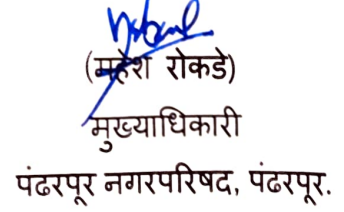 (महेश रोकडे)
मुख्याधिकारी
पंढरपूर नगरपरिषद, पंढरपूर.